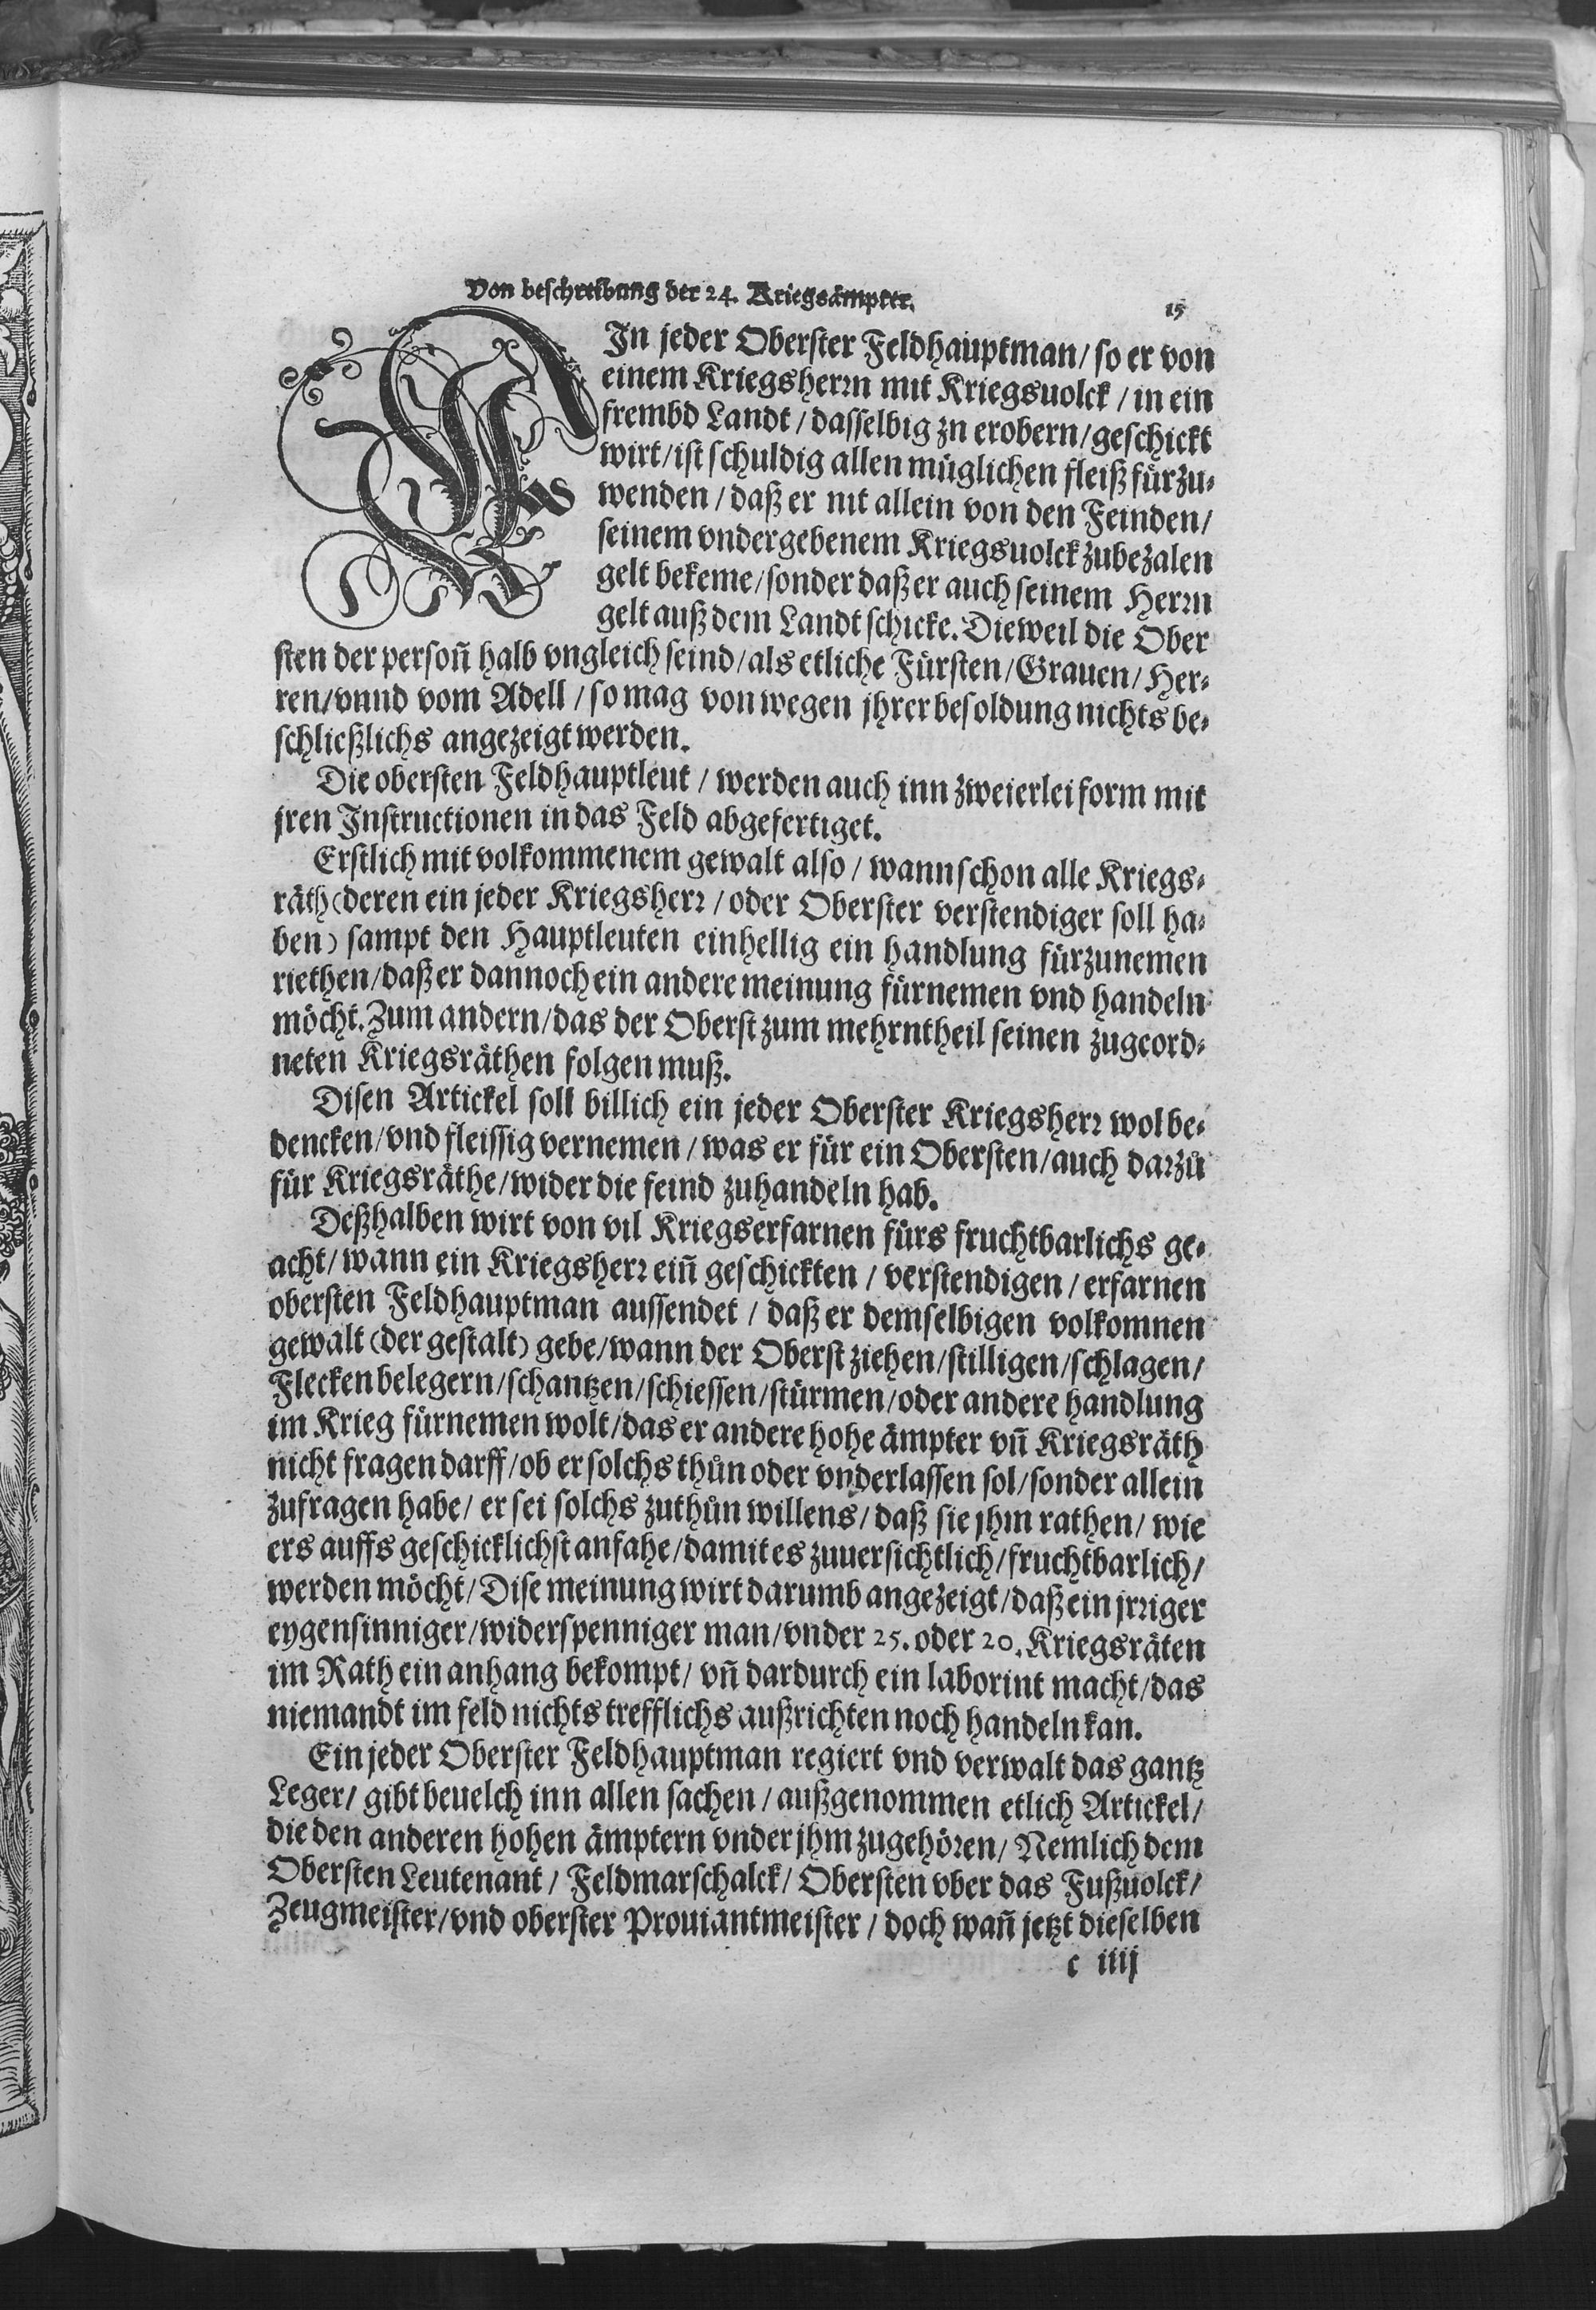 Von beschreibung der 24. Kriegsämpter. 15
EIn jeder Oberster Feldhauptman/ so er von
einem Kriegsherrn mit Kriegsuolck / in ein
frembd Landt / dasselbig zn erobern/geschickt
wirt/ist schuldig allen müglichen fleiß fürzu-
wenden / daß er nit allein von den Feinden/
seinem vndergebenem Kriegsuolck zubezalen
gelt bekeme/sonder daß er auch seinem Herrn
gelt auß dem Landt schicke. Dieweil die Ober
sten der persoñ halb vngleich seind/als etliche Fürsten/Grauen/ Her-
ren/vnnd vom Adell / so mag von wegen jhrer besoldung nichts be-
schließlichs angezeigt werden.
Die obersten Feldhauptleut / werden auch inn zweierlei form mit
jren Instructionen in das Feld abgefertiget.
Erstlich mit volkommenem gewalt also / wann schon alle Kriegs-
räth (deren ein jeder Kriegsherr / oder Oberster verstendiger soll ha-
ben) sampt den Hauptleuten einhellig ein handlung fürzunemen
riethen/daß er dannoch ein andere meinung fürnemen vnd handeln
möcht. Zum andern/das der Oberst zum mehrntheil seinen zugeord-
neten Kriegsräthen folgen muß.
Disen Artickel soll billich ein jeder Oberster Kriegsherr wol be-
dencken/vnd fleissig vernemen / was er für ein Obersten/auch darzů
für Kriegsräthe/wider die feind zuhandeln hab.
Deßhalben wirt von vil Kriegserfarnen fürs fruchtbarlichs ge-
acht/ wann ein Kriegsherr eiñ geschickten / verstendigen / erfarnen
obersten Feldhauptman aussendet / daß er demselbigen volkomnen
gewalt (der gestalt) gebe/wann der Oberst ziehen/stilligen/schlagen/
Flecken belegern/schantzen/schiessen/stürmen/oder andere handlung
im Krieg fürnemen wolt/das er andere hohe ämpter vñ Kriegsräth
nicht fragen darff/ob er solchs thůn oder vnderlassen sol/sonder allein
zufragen habe/ er sei solchs zuthůn willens/ daß sie jhm rathen/ wie
ers auffs geschicklichst anfahe/damit es zuuersichtlich/fruchtbarlich/
werden möcht/ Dise meinung wirt darumb angezeigt/daß ein jrriger
eygensinniger/widerspenniger man/vnder 25. oder 20. Kriegsräten
im Rath ein anhang bekompt/ vñ dardurch ein laborint macht/das
niemandt im feld nichts trefflichs außrichten noch handeln kan.
Ein jeder Oberster Feldhauptman regiert vnd verwalt das gantz
Leger/ gibt beuelch inn allen sachen / außgenommen etlich Artickel/
die den anderen hohen ämptern vnder jhm zugehören/ Nemlich dem
Obersten Leutenant / Feldmarschalck/ Obersten vber das Fußuolck/
Zeugmeister/vnd oberster Prouiantmeister / doch wañ jetzt dieselben
c iiij